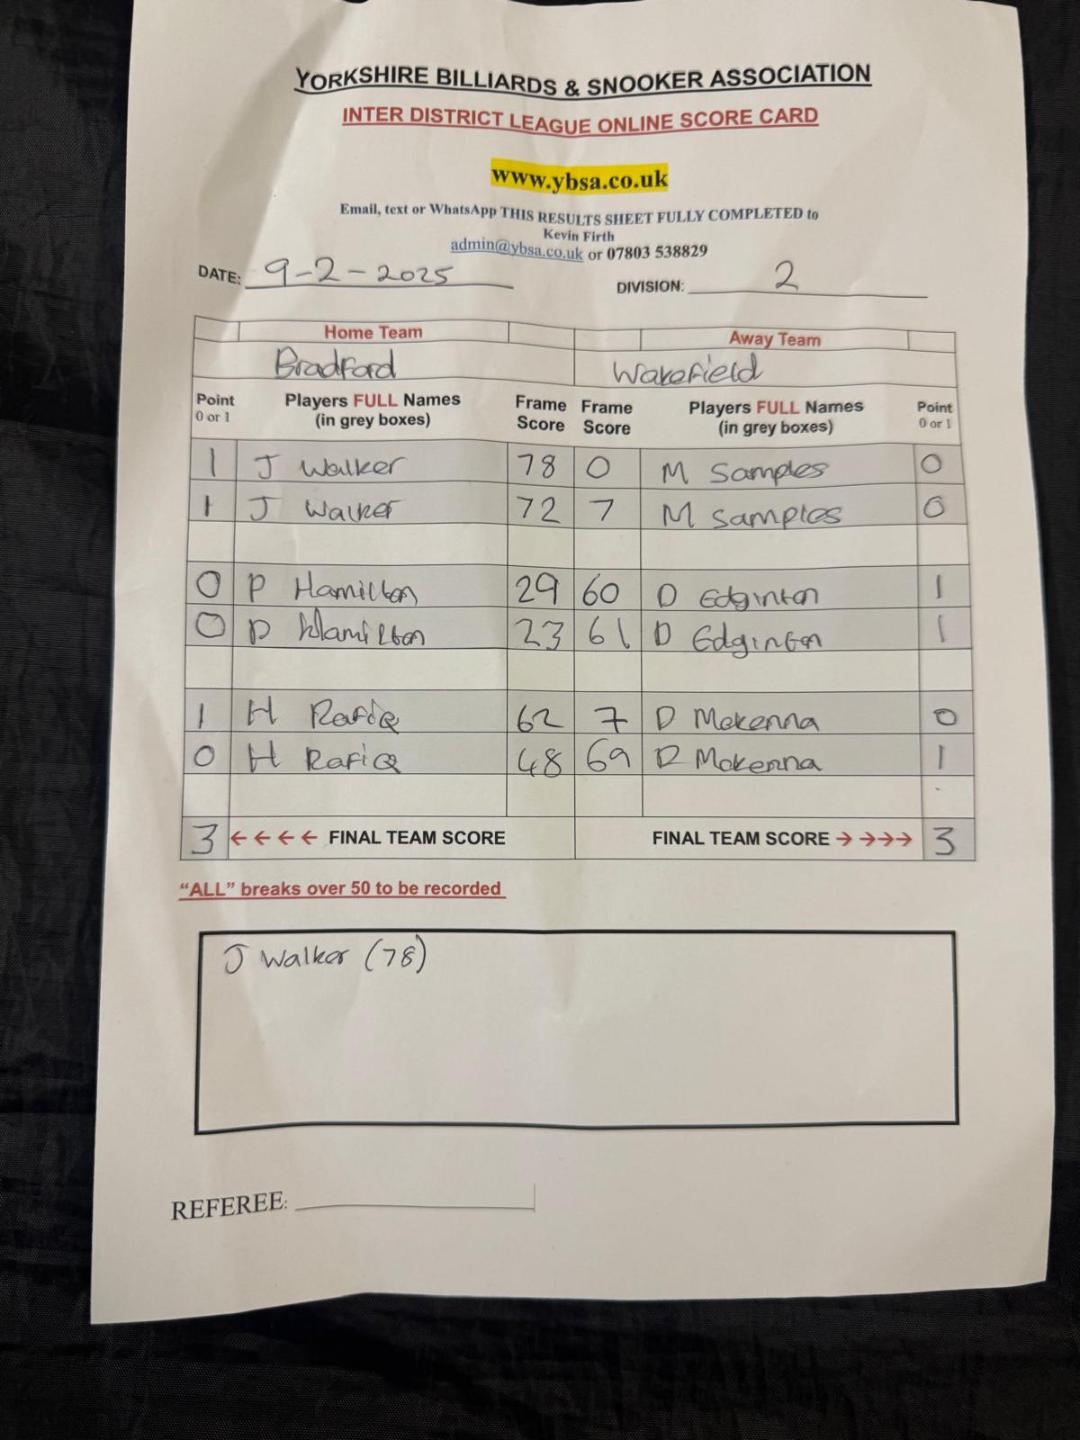 YORKSHIRE BILLIARDS & SNOOKER ASSOCIATION
INTER DISTRICT LEAGUE ONLINE SCORE CARD
www.ybsa.co.uk
Email, text or WhatsApp THIS RESULTS SHEET FULLY COMPLETED to
Kevin Firth
admin@ybsa.co.uk or 07803 538829
DATE: 9-2-2025 DIVISION: 2
Home Team Away Team
Bradford Wakefield
Point 0 or 1 Players FULL Names (in grey boxes) Frame Score Frame Score Players FULL Names (in grey boxes) Point 0 or 1
1 J Walker 78 0 M Samples 0
1 J Walker 72 7 M Samples 0
0 P Hamilton 29 60 D Edginton 1
0 P Hamilton 23 61 D Edginton 1
1 H Rafiq 62 7 D Mckenna 0
0 H Rafiq 48 69 D Mckenna 1
3 ←←←← FINAL TEAM SCORE FINAL TEAM SCORE →→→→ 3
“ALL” breaks over 50 to be recorded
J Walker (78)
REFEREE: